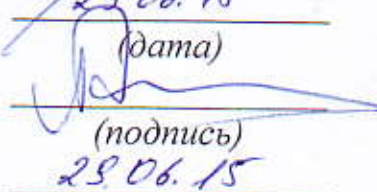 (дата)
(подпись)
29.06.15